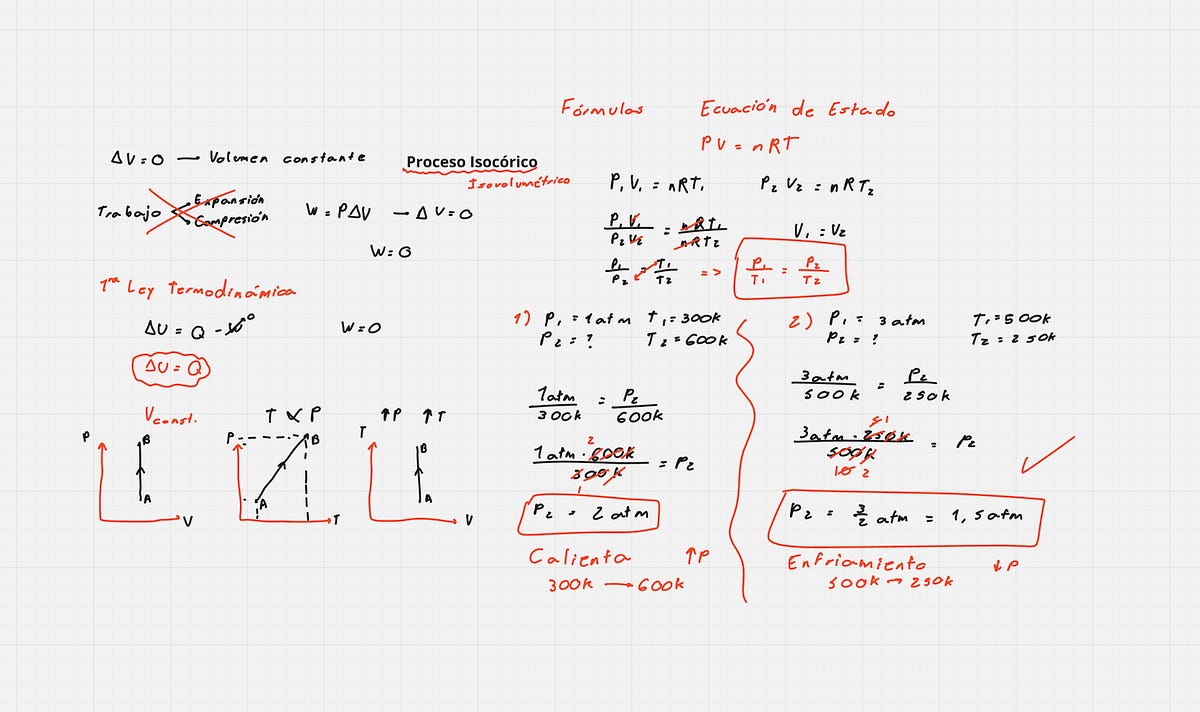 Fórmulas
Ecuación de Estado
PV = nRT
ΔV = 0 — Volumen constante
Proceso Isocórico
Isovolumétrico
Trabajo
Expansión
Compresión
W = PΔV — ΔV = 0
W = 0
P₁V₁ = nRT₁
P₂V₂ = nRT₂
P₁V₁/P₂V₂ = nRT₁/nRT₂
V₁ = V₂
P₁/P₂ = T₁/T₂ => P₁/T₁ = P₂/T₂
1ra Ley Termodinámica
ΔU = Q - W 0
W = 0
ΔU = Q
Vconst.
P
B
A
V
T ∝ P
P
B
A
T
↑P ↑T
T
B
A
V
1) P₁ = 1atm T₁ = 300k
P₂ = ? T₂ = 600k
1atm/300k = P₂/600k
2
1atm · 600k/300k = P₂
1
P₂ = 2 atm
Calienta ↑P
300k → 600k
2) P₁ = 3 atm T₁ = 500k
P₂ = ? T₂ = 250k
3atm/500k = P₂/250k
5 1
3atm · 250k/500k = P₂
10 2
P₂ = 3/2 atm = 1,5atm
Enfriamiento ↓P
500k → 250k